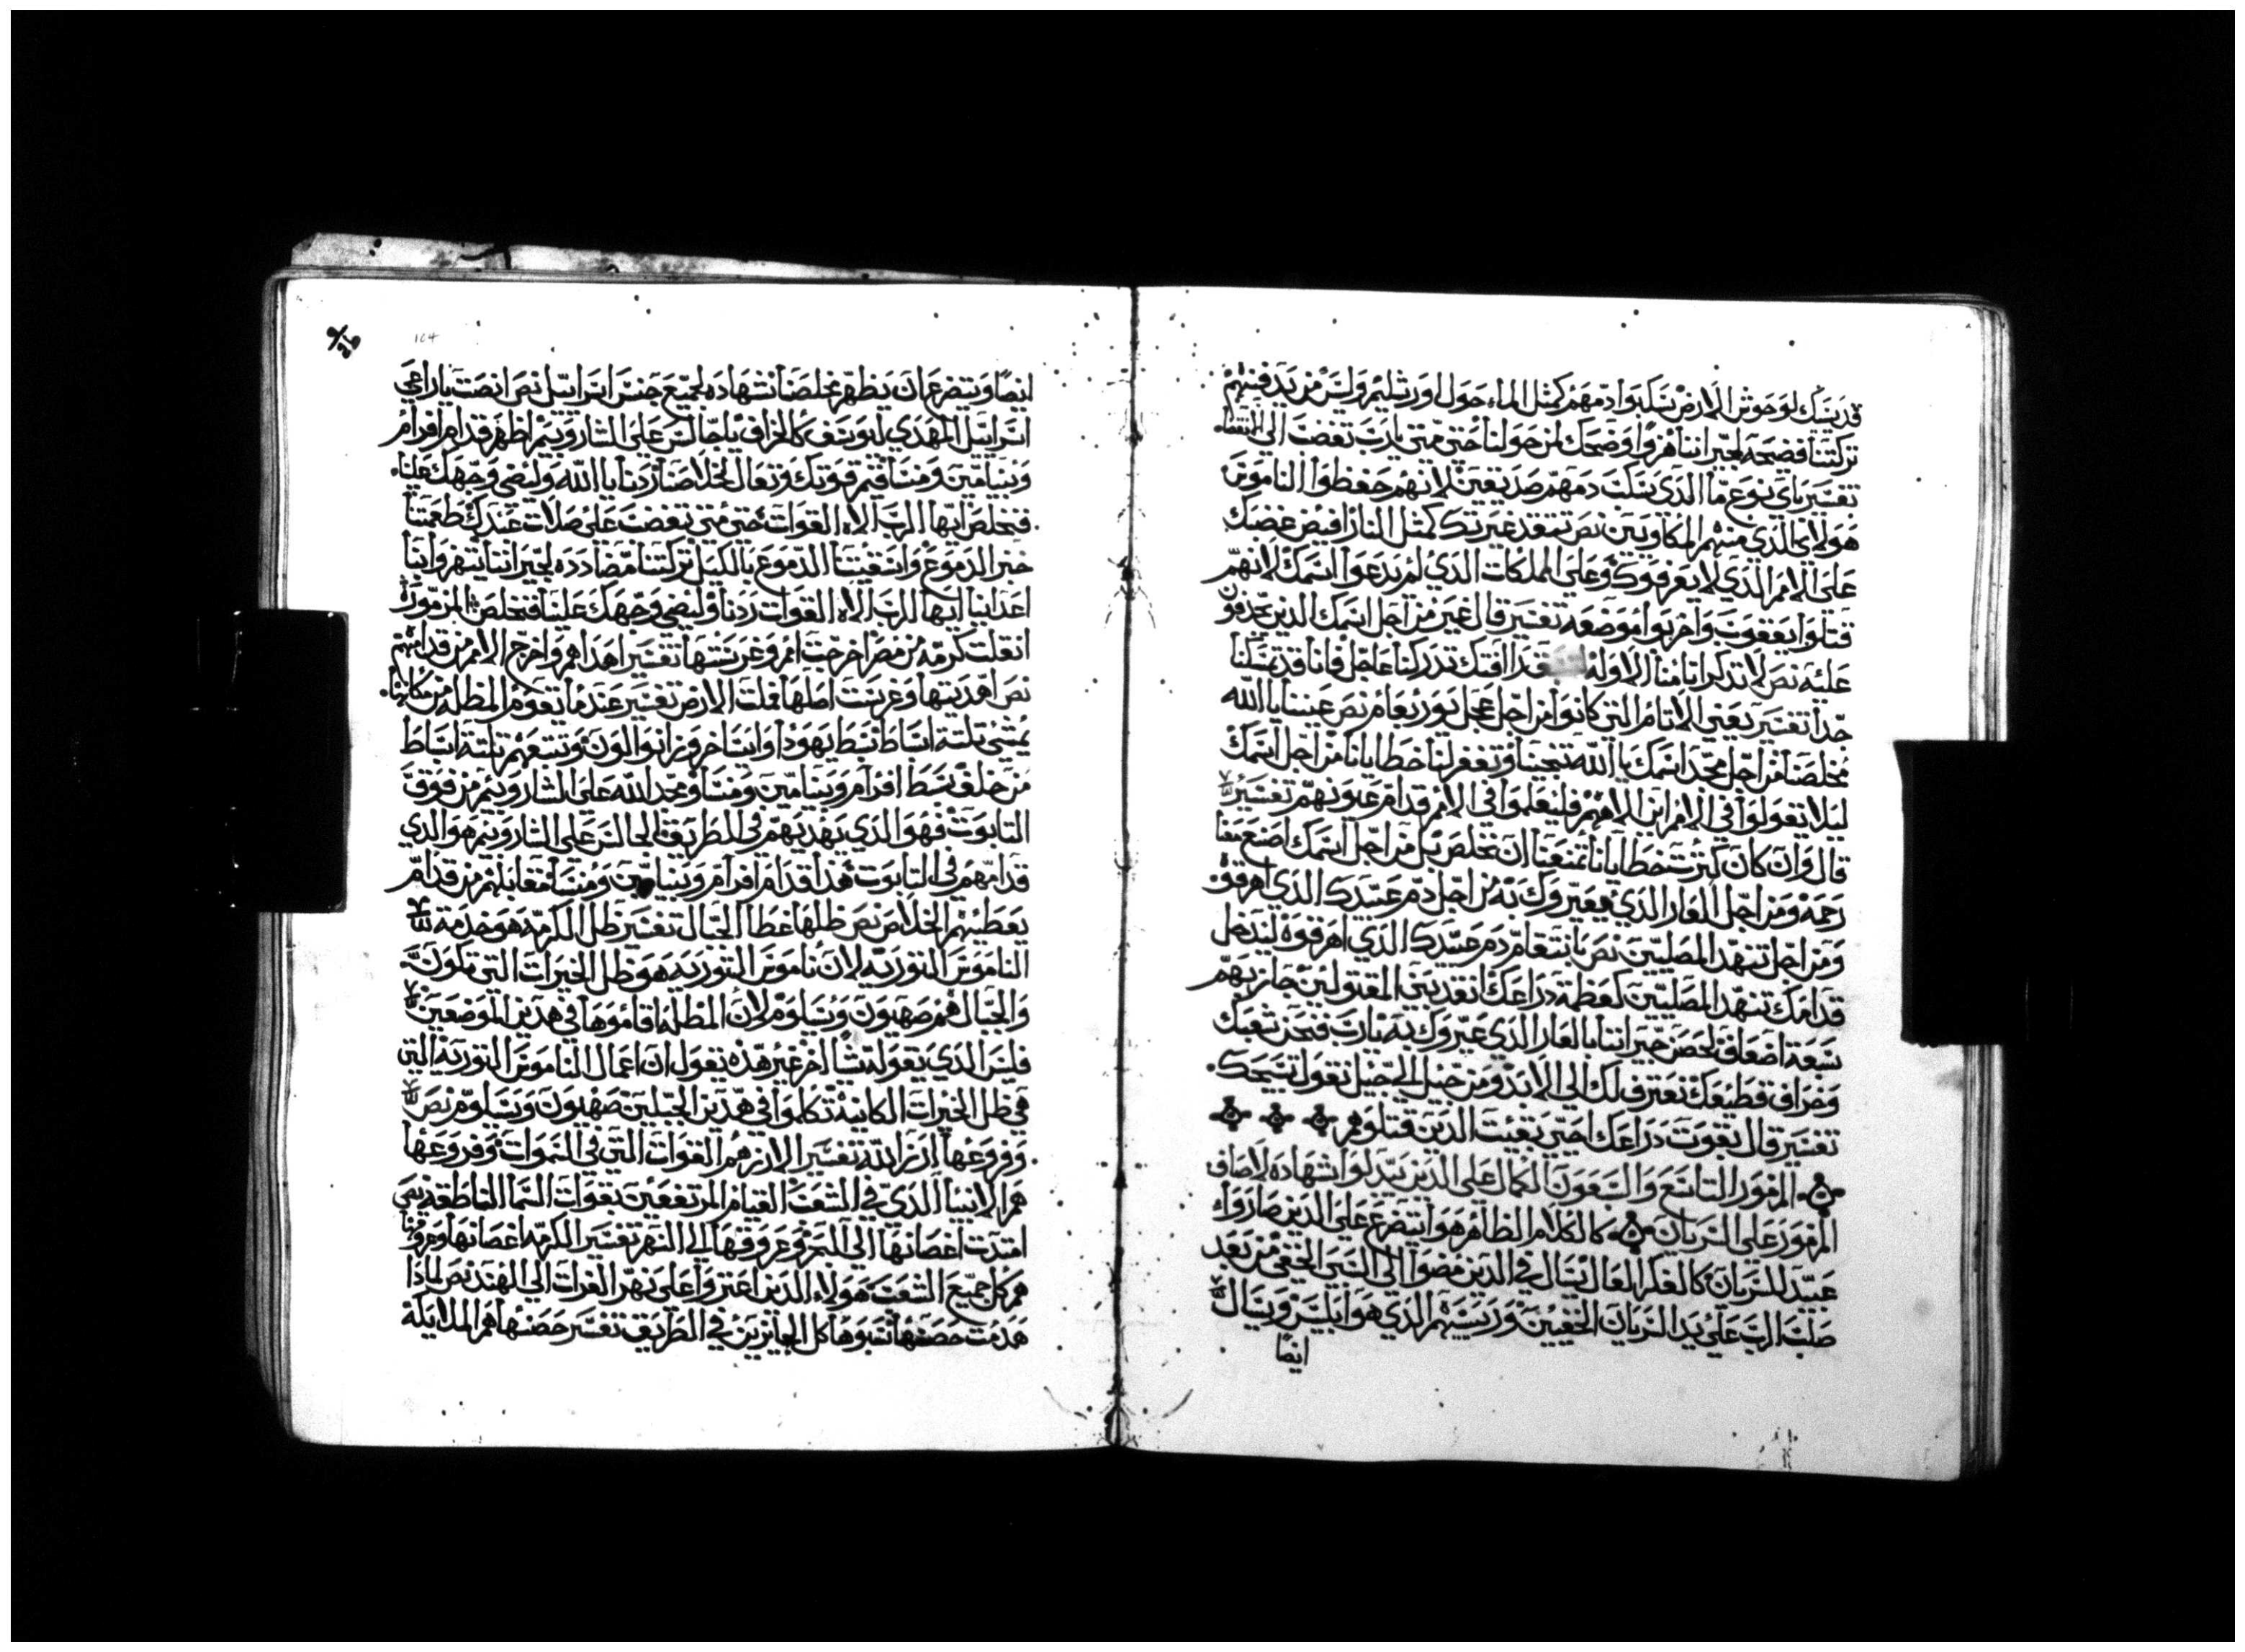 قديسيك لوحوش الارض سكبوا دمهم كمثل الماء حول اورشليم وليس من يدفنهم
تركتنا فضيحه لجيراننا هزوا وضحك لمن حولنا حتى متى يارب تغضب الى الانقضاء
تفسير باى نوع ما الذى سكب دمهم صديقين لانهم حفظوا الناموس
هولاى الذى منهم المكاوبين نص تتقد غيرتك كمثل النار افيض غضبك
على الامم الذي لا يعرفوك وعلى المملكات الذي لم يدعوا اسمك لانهم
قتلوا يعقوب واخربوا موضعه تفسير قال غير من اجل اسمك الذين يجدفون
عليه نص لا تذكر اثامنا الاوله قد رافتك تدركنا عاجل فاننا قد تمسكنا
جدا تفسير يعنى الاثام التى كانوا من اجل عجل بوريعام نص عيننا يا الله
مخلصنا من اجل مجد اسمك يا الله تنجينا وتغفر لنا خطايانا من اجل اسمك
ليلا تقولوا فى الامم اين الاههم فليعلموا فى الامم قدام عيونهم تفسير
قال وان كان كثرت خطايانا تمنعنا ان نخلص بل من اجل اسمك اصنع معنا
رحمه ومن اجل العار الذي عيروك به من اجل دم عبيدك الذي اهرقوه
ومن اجل تنهد المصليين نص بانتقام دم عبيدك الذي اهرقوه ليدخل
قدامك تنهد المصليين كعظمة دراعك انقد بنى المقتولين جازيهم
سبعة اضعاف لحضن جيراننا بالعار الذى عيروك به يارب فنحن شعبك
وخراف قطيعك نعترف لك الى الابد ومن جيل الى جيل نقول تسبيحك
تفسير قال بقوت دراعك احتى بقيت الذين قتلوهم
المزمور التاسع والسبعون الكمال على الذين يبدلوا شهاده لاصاف
المزمور على السريان كالكلام الظاهر هو ايتضرع على الذين صاروا
عبيد للسريان كالفكر العال يسال فى الذين مضوا الى السبى الخفى من بعد
صلب الرب على يد السريان الخفيين ورييسهم الذي هو ابليس ويسال
ايضا
104
ايضا ويتضرع ان يظهر مخلصنا شهاده لجميع جنس اسراييل نص انصت ياراعى
اسراييل المهدي ليوسف كالخراف ياجالس على الشاروبيم اظهر قدام افرام
وبنيامين ومنسا قيم قوتك وتعال لخلاصنا ردنا يا الله وليضى وجهك علينا
فنخلص ايها الرب الاه القوات حتى متى تغضب على صلات عبدك طعمتنا
خبز الدموع واسقيتنا الدموع بالكيل تركتنا مضادده لجيراننا يتهزوا بنا
اعداينا ايها الرب الاه القوات ردنا وليضى وجهك علينا فنخلص المزمور
انقلت كرمه من مصر اخرجت امم وغرستها تفسير اهداهم واخرج الامم من قدامهم
نص اهديتها وغرست اصلها فملت الارض تفسير عندما تقوم المظله من مكانها
يمشى تلتة اسباط سبط يهودا وايساخر وزابوالون وتتبعهم تلتة اسباط
من خلف سبط افرام وبنيامين ومنسا ومجد الله على الشاروبيم من فوق
التابوت فهو الذي يهديهم فى الطريق الجالس على الشاروبيم هو الذي
قدامهم فى التابوت هذا قدام افرام وبنيامين ومنسا مقابلهم من قدام
يعطيهم الخلاص نص ظلها غطا الجبال تفسير ظل الكرمه هو خدمة
الناموس التوريه لان ناموس التوريه هو ظل الخيرات التى تكون
والجبال هم صهيون وشيلوم لان المظله اقاموها فى هذين الموضعين
فليس الذي يقوله شيا اخر غير هذه يقول ان اعمال الناموس التوريه التى
هى ظل الخيرات الكاينه تكلموا فى هذين الجبلين صهيون وشيلوم نص
وفروعها ارز الله تفسير الارز هم القوات التى فى السموات وفروعها
هم الانبيا الذي فى الشعب القيام المرتفعين بقوات السما الناطقه نص
امتدت اغصانها الى البحر وعروقها الى النهر تفسير الكرمه اغصانها وعروقها
هم كل جميع الشعب هولاء الذين اعتروا على نهر الفرات الى الهند نص لماذا
هدمت حصنها نتبوها كل الجايزين فى الطريق تفسير حصنها هم الملايكه